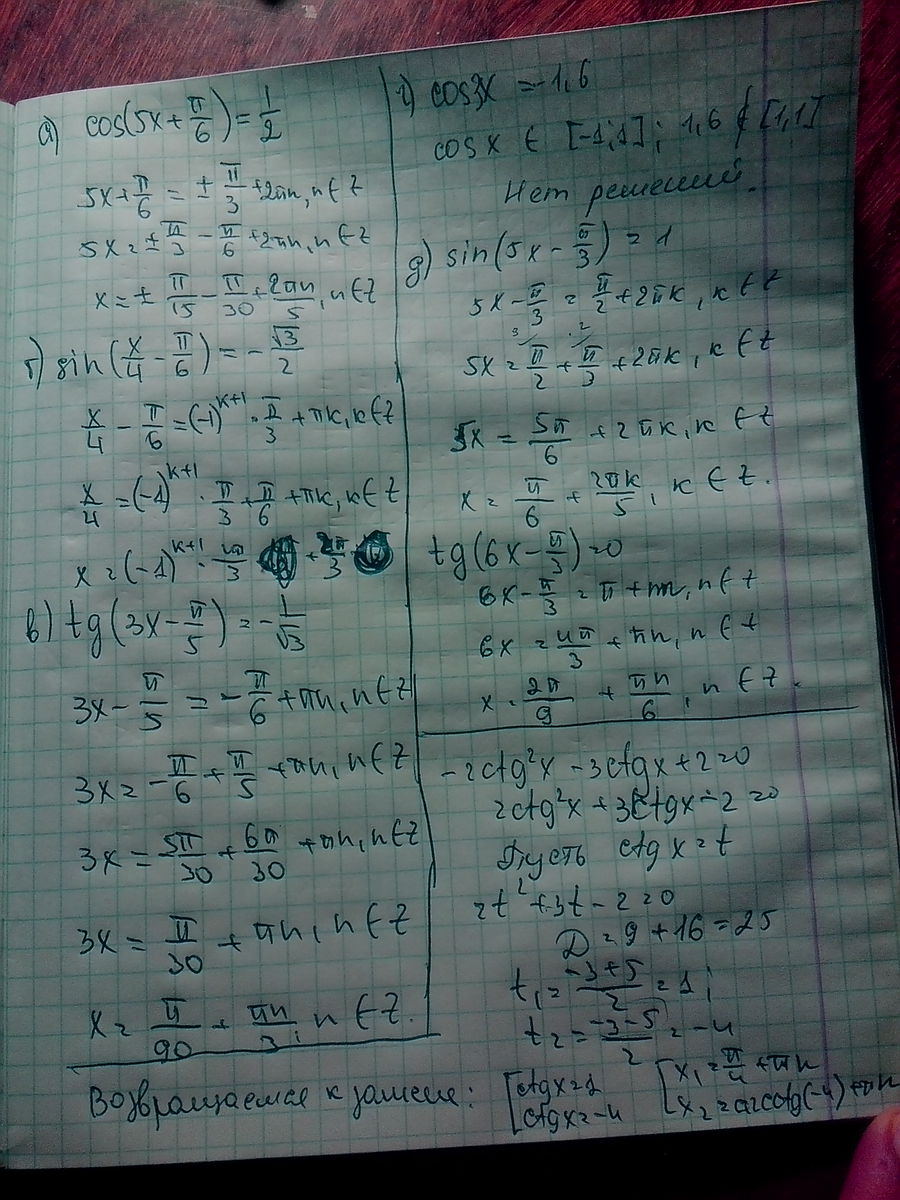 а) cos(5x + π/6) = 1/2
5x + π/6 = ± π/3 + 2πn, n ∈ Z
5x = ± π/3 − π/6 + 2πn, n ∈ Z
x = ± π/15 − π/30 + 2πn/5, n ∈ Z
б) sin(x/4 − π/6) = −√3/2
x/4 − π/6 = (−1)^(k+1) · π/3 + πk, k ∈ Z
x/4 = (−1)^(k+1) · π/3 + π/6 + πk, k ∈ Z
x = (−1)^(k+1) · 4π/3 + 2π/3
в) tg(3x − π/5) = −1/√3
3x − π/5 = −π/6 + πn, n ∈ Z
3x = −π/6 + π/5 + πn, n ∈ Z
3x = −5π/30 + 6π/30 + πn, n ∈ Z
3x = π/30 + πn, n ∈ Z
x = π/90 + πn/3, n ∈ Z.
г) cos3x = −1,6
cos x ∈ [−1;1]; 1,6 ∉ [1,1]
Нет решений.
д) sin(5x − π/3) = 1
5x − π/3 = π/2 + 2πk, k ∈ Z
3 2
5x = π/2 + π/3 + 2πk, k ∈ Z
5x = 5π/6 + 2πk, k ∈ Z
x = π/6 + 2πk/5, k ∈ Z.
tg(6x − π/3) = 0
6x − π/3 = π + πn, n ∈ Z
6x = 4π/3 + πn, n ∈ Z
x = 2π/9 + πn/6, n ∈ Z.
−2ctg²x − 3ctgx + 2 = 0
2ctg²x + 3ctgx − 2 = 0
Пусть ctg x = t
2t² + 3t − 2 = 0
Д = 9 + 16 = 25
t₁ = (−3+5)/2 = 1;
t₂ = (−3−5)/2 = −4
Возвращаемся к замене: [ctgx = 1 [x₁ = π/4 + πn
ctgx = −4 x₂ = arcctg(−4) + πn